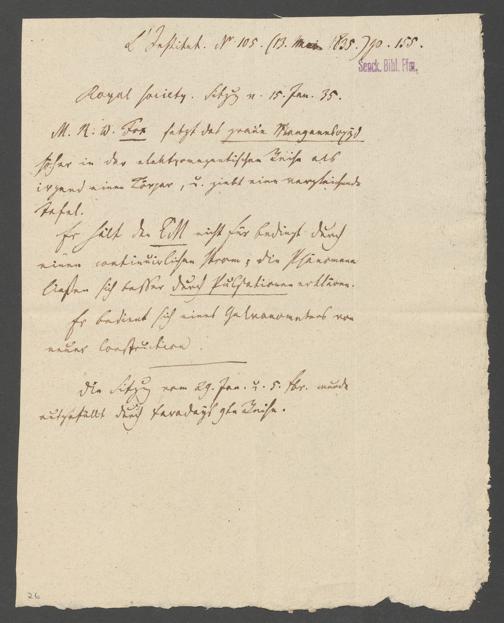 L'Institut. No 105. (13. Mai 1835.) p. 155.
Senck. Bibl. Ffm.
Royal Society. Sitzg v. 15. Jan. 35.
M. R. W. Fox setzt das graue Manganoxyd
höher in der elektromagnetischen Reihe als
irgend einen Körper, u. giebt eine vergleichende
Tafel.
Er hält den EM nicht für bedingt durch
einen continuirlichen Strom; die Phänomene
ließen sich besser durch Pulsationen erklären.
Er bedient sich eines Galvanometers von
neuer Construction.
Die Sitzg vom 29. Jan. u. 5. Fbr. wurde
ausgefüllt durch Faradays 9te Reihe.
26